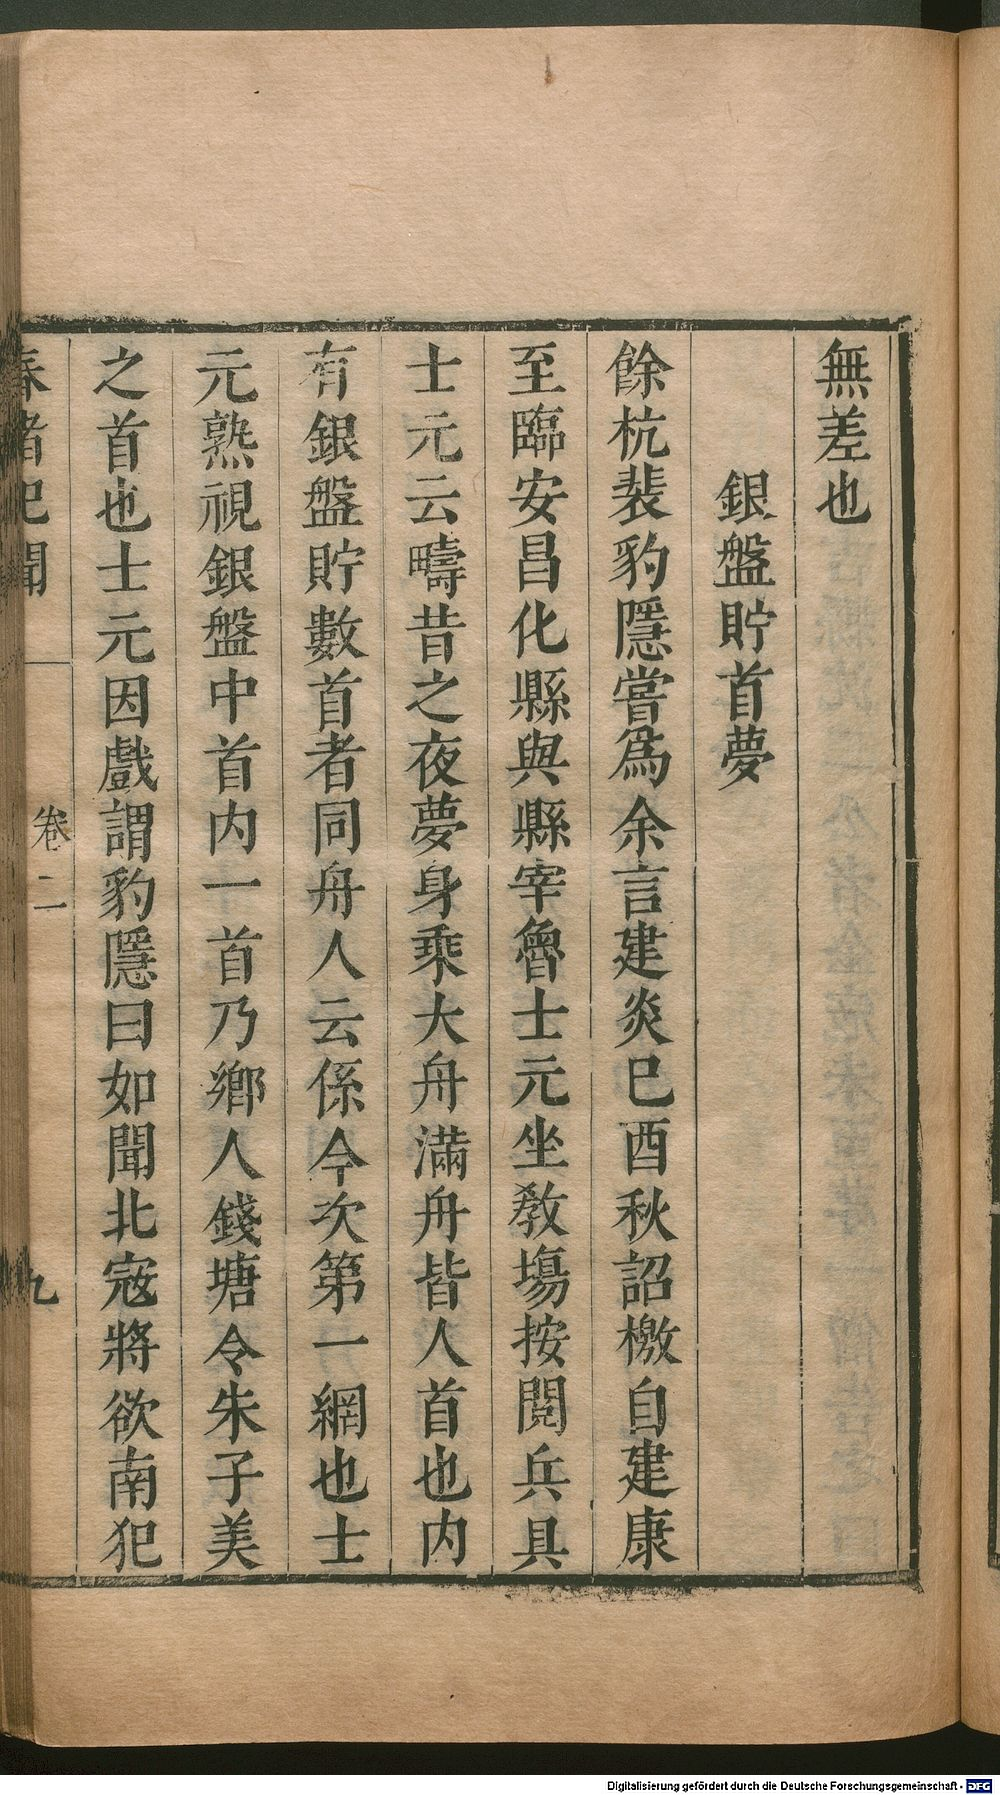 無差也
銀盤貯首夢
餘杭裴豹隱嘗爲余言建炎巳酉秋詔檄自建康
至臨安昌化縣與縣宰魯士元坐敎塲按閱兵具
士元云疇昔之夜夢身乘大舟滿舟皆人首也内
有銀盤貯數首者同舟人云係今次第一網也士
元熟視銀盤中首内一首乃鄉人錢塘令朱子美
之首也士元因戲謂豹隱曰如聞北宼將欲南犯
春渚紀聞
卷二
九
Digitalisierung gefördert durch die Deutsche Forschungsgemeinschaft - DFG